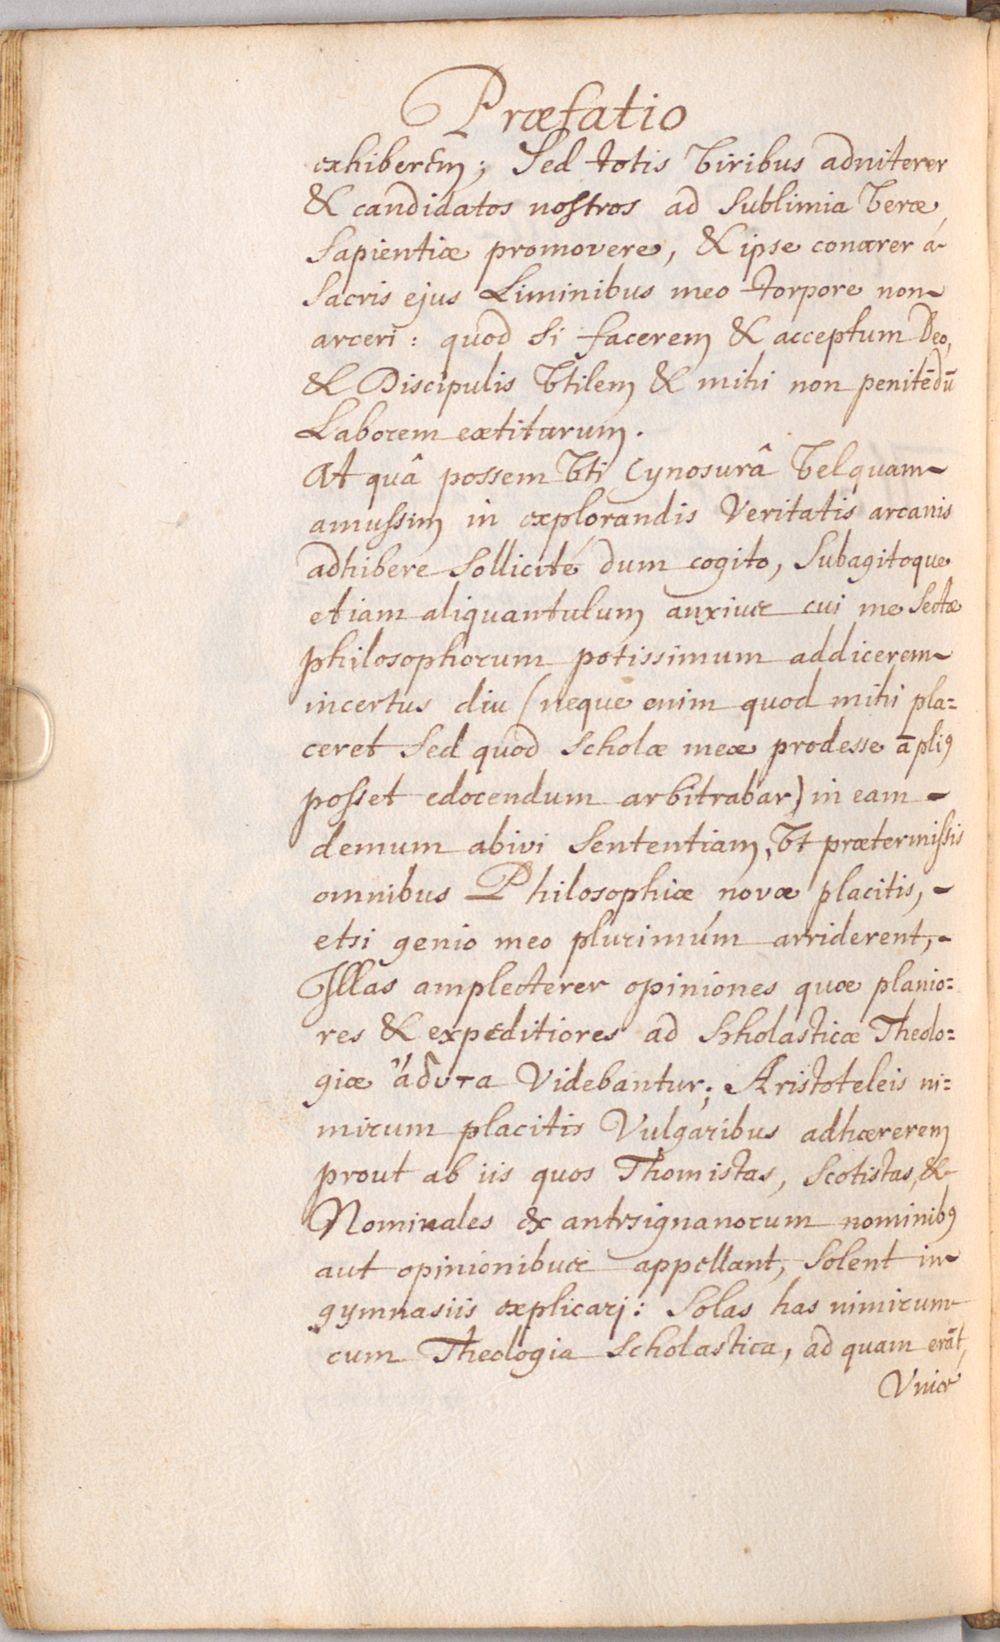 Præfatio
exhiberem; Sed totis viribus adniterer
& candidatos nostros ad Sublimia veræ
Sapientiæ promovere, & ipse conarer á
Sacris ejus Liminibus meo torpore non
arceri: quod Si facerem & acceptum Deo,
& Discipulis vtilem & mihi non penitēdū
Laborem extiturum.
At quâ possem vti Cynosurâ vel quam
amussim in explorandis Veritatis arcanis
adhibere Sollicité dum cogito, Subagitoque
etiam aliquantulum anxius cui me Sectæ
philosophorum potissimum addicerem
incertus diu (neque enim quod mihi pla=
ceret Sed quod Scholæ meæ prodesse āpli9
posset edocendum arbitrabar) in eam
demum abivi Sententiam, vt prætermissis
omnibus Philosophiæ novæ placitis,
etsi genio meo plurimúm arriderent,
Illas amplecterer opiniones quæ planio=
res & expeditiores ad Scholasticæ Theolo=
giæ Videbantur; Aristoteleis ni=
mirum placitis Vulgaribus adhærerem
prout ab iis quos Thomistas, Scotistas, &
Nominales ex antesignanorum nominib9
aut opinionibus appellant, Solent in
gymnasiis explicari: Solas has nimirum
cum Theologia Scholastica, ad quam erāt,
Vniæ